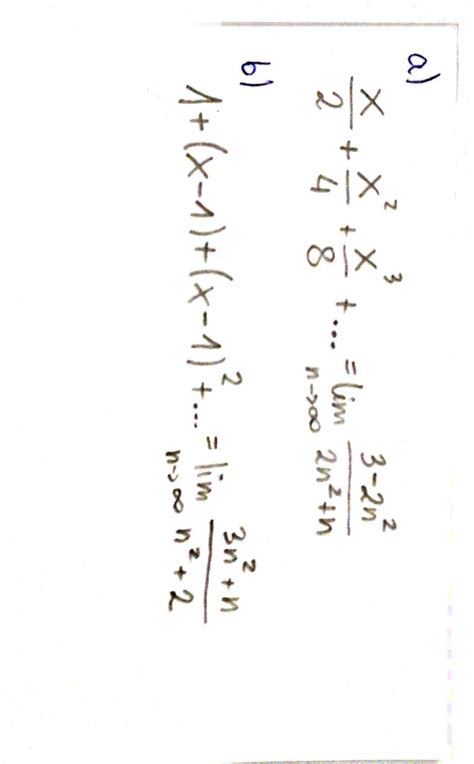 a)
x/2 + x²/4 + x³/8 + ... = lim n→∞ (3-2n²)/(2n²+n)
b)
1+(x-1)+(x-1)²+... = lim n→∞ (3n²+n)/(n²+2)